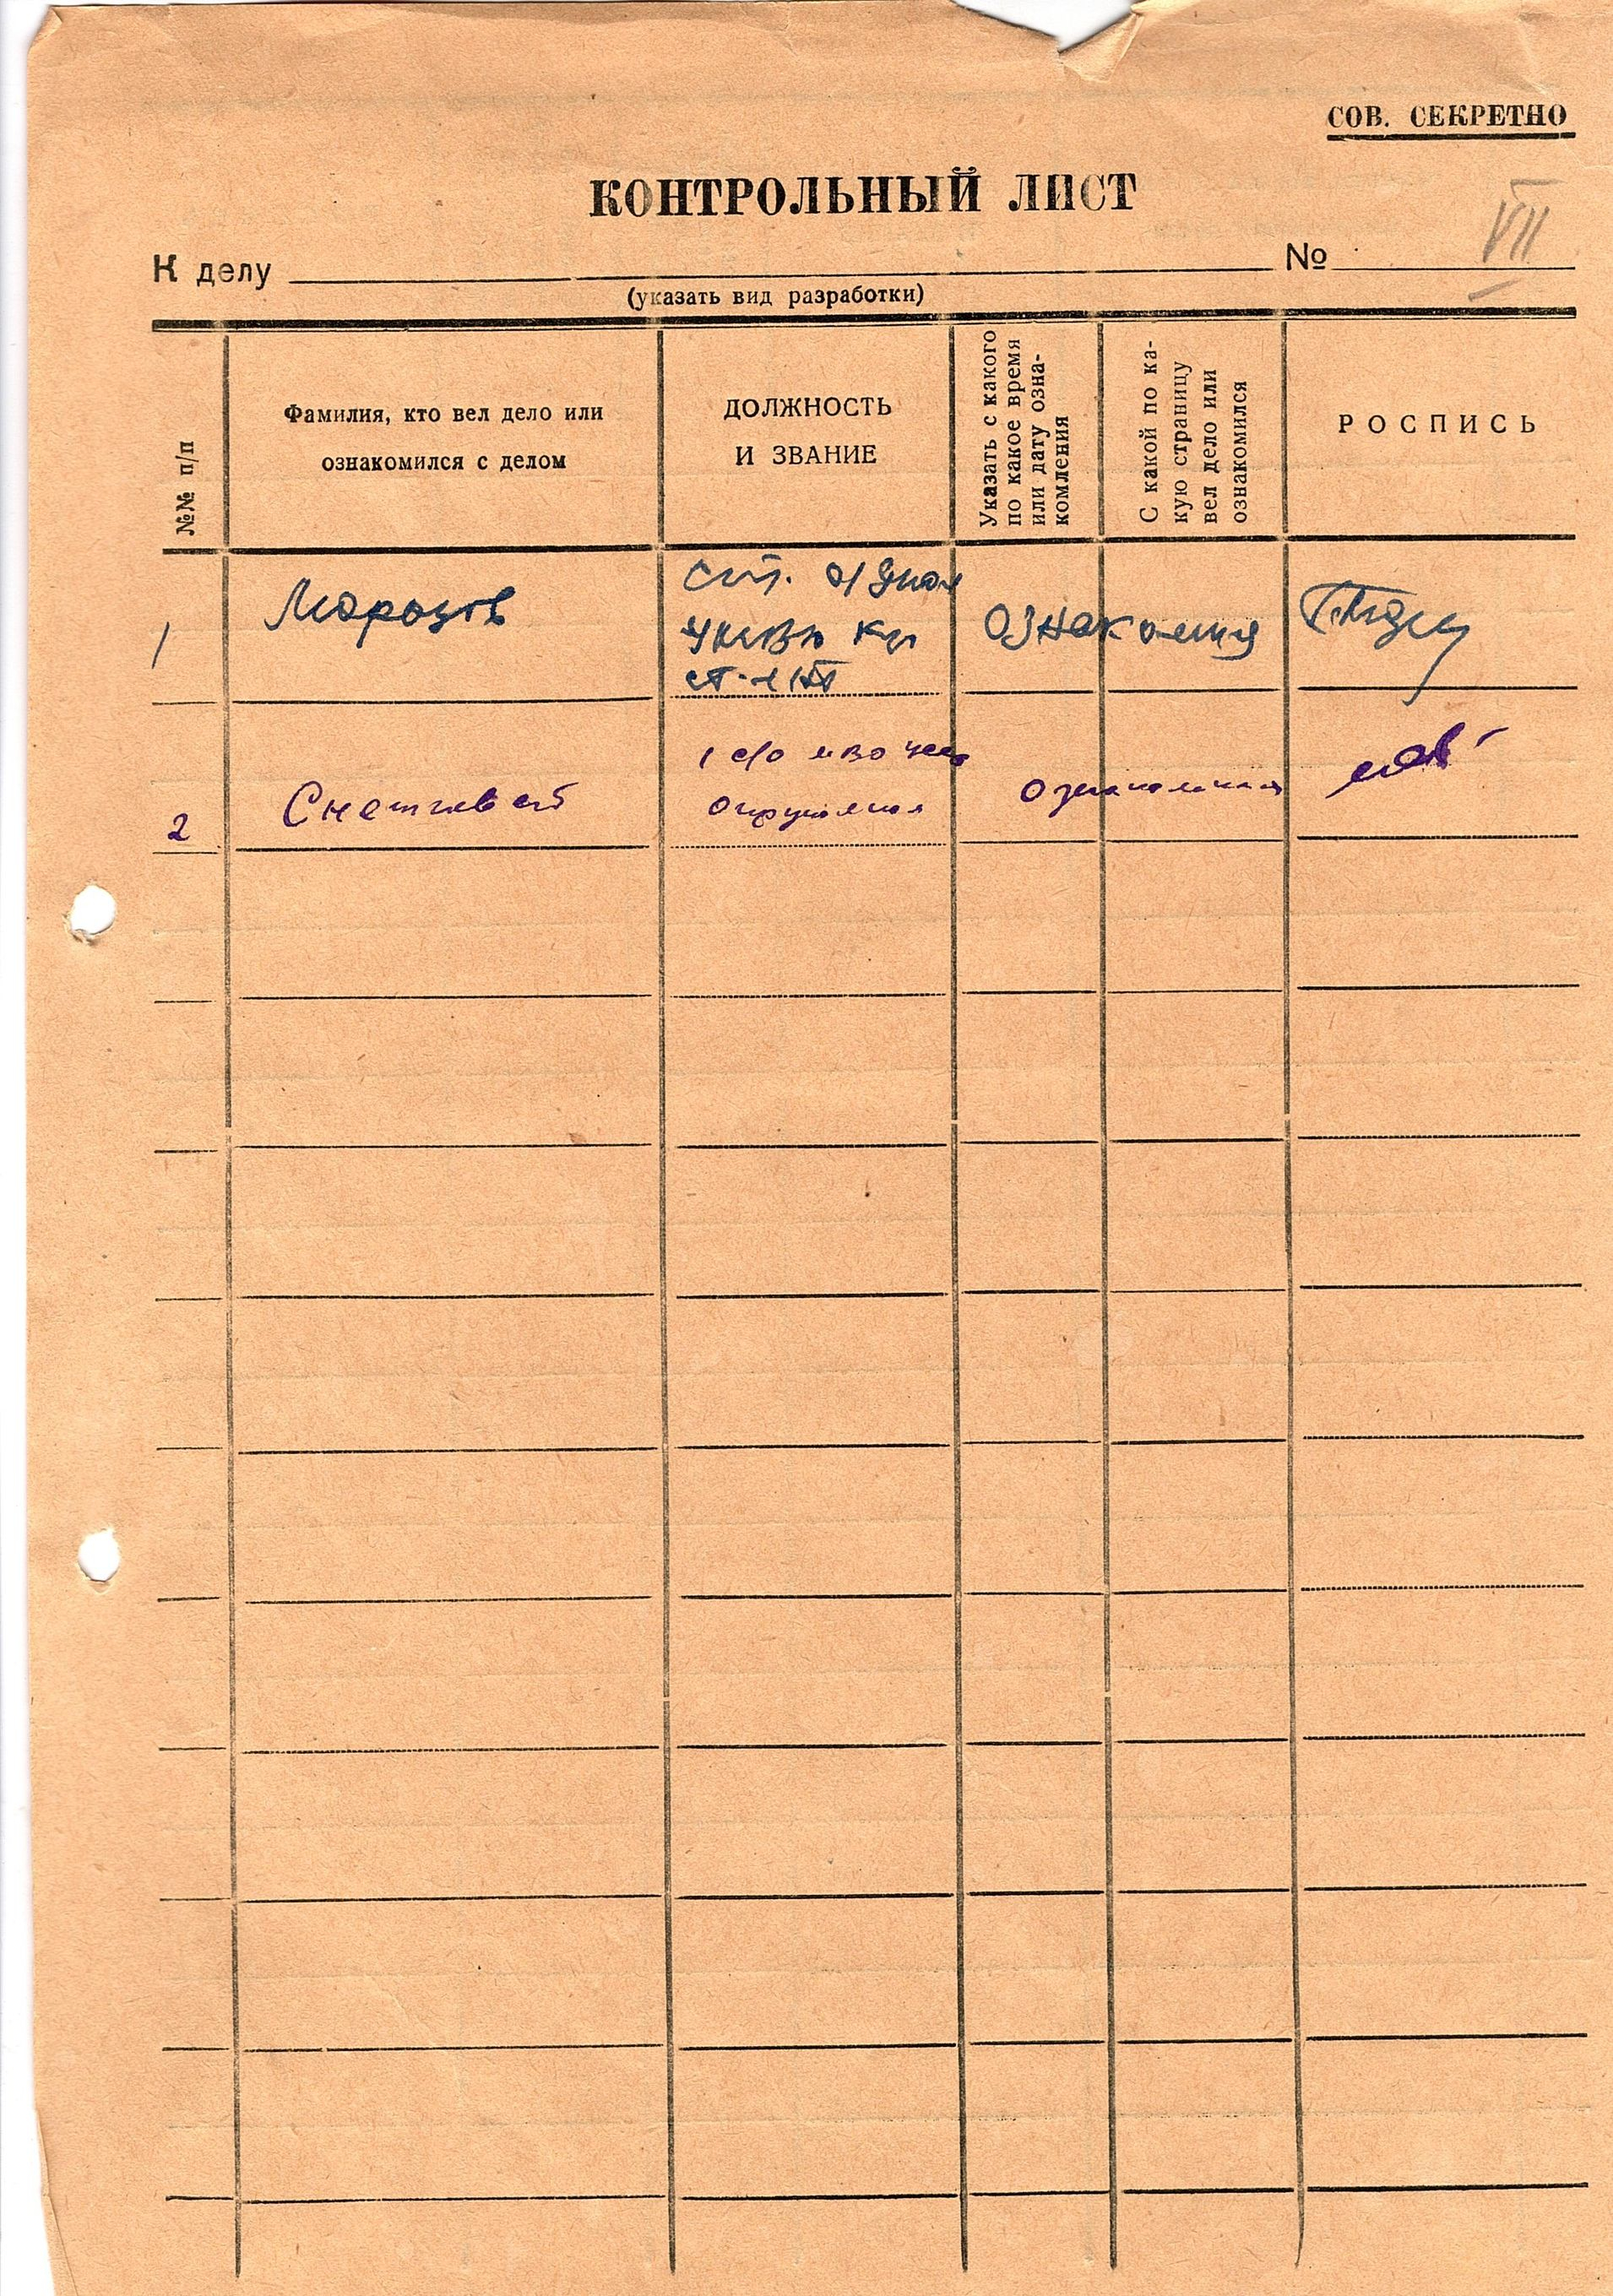 СОВ. СЕКРЕТНО
КОНТРОЛЬНЫЙ ЛИСТ
К делу № VII
(указать вид разработки)
№№ п/п
Фамилия, кто вел дело или
ознакомился с делом
ДОЛЖНОСТЬ
И ЗВАНИЕ
Указать с какого
по какое время
или дату озна-
комления
С какой по ка-
кую страницу
вел дело или
ознакомился
РОСПИСЬ
1
Морозов
ст.
ст. л-нт
Ознакомился
2
Ознакомился